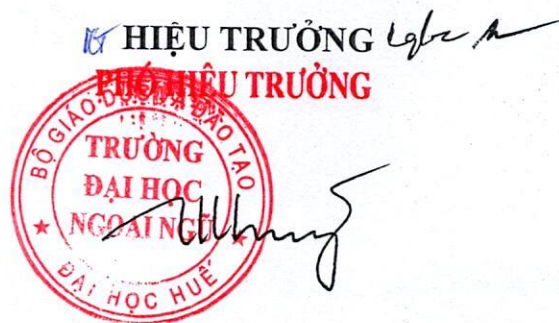 KT HIỆU TRƯỞNG
PHÓ HIỆU TRƯỞNG
BỘ GIÁO DỤC VÀ ĐÀO TẠO
TRƯỜNG
ĐẠI HỌC
NGOẠI NGỮ
ĐẠI HỌC HUẾ